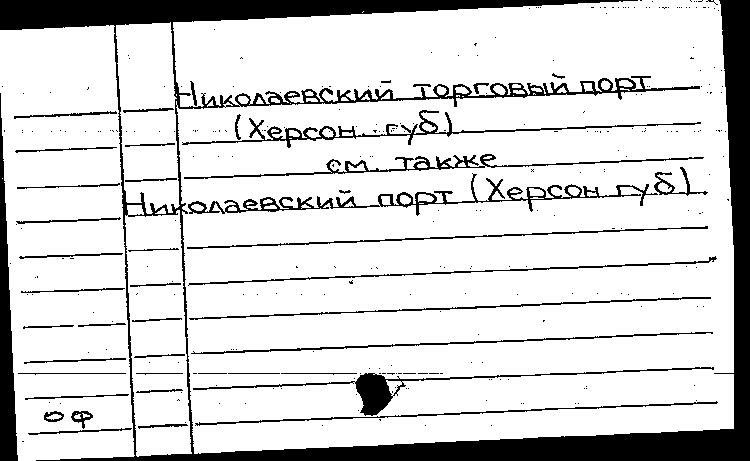 Николаевский торговый порт
(Херсон. губ)
см. также
Николаевский порт (Херсон губ)
оф